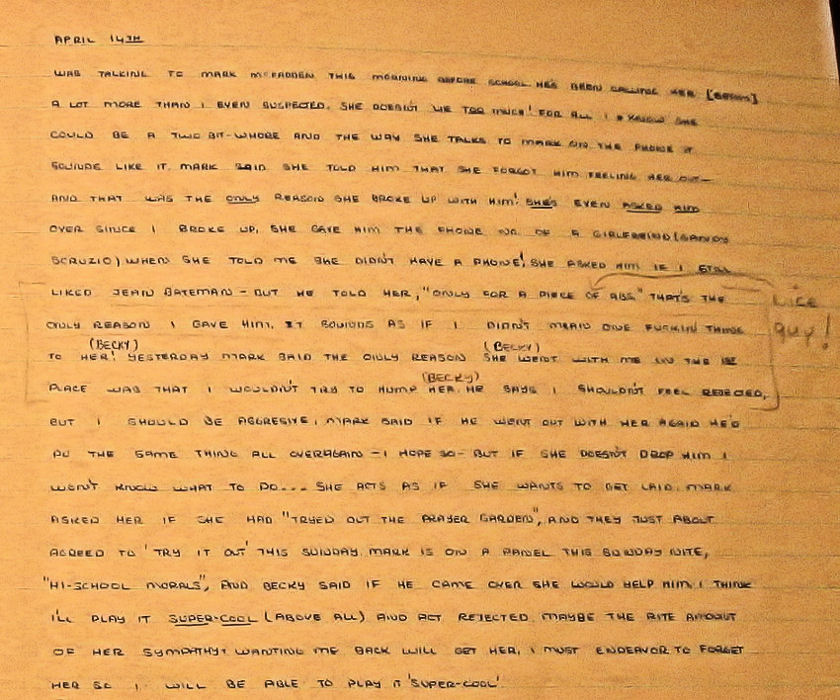 APRIL 14TH
WAS TALKING TO MARK McFADDEN THIS MORNING BEFORE SCHOOL. HE'S BEEN CALLING HER [BECKY]
A LOT MORE THAN I EVEN SUSPECTED. SHE DOESN'T LIE TOO MUCH! FOR ALL I KNOW SHE
COULD BE A TWO BIT-WHORE AND THE WAY SHE TALKS TO MARK ON THE PHONE IT
SOUNDS LIKE IT. MARK SAID SHE TOLD HIM THAT SHE FORGOT HIM FEELING HER OUT—
AND THAT WAS THE ONLY REASON SHE BROKE UP WITH HIM! SHE'S EVEN ASKED HIM
OVER SINCE I BROKE UP, SHE GAVE HIM THE PHONE NO. OF A GIRLFREIND (SANDY
SCRUZIO) WHEN SHE TOLD ME SHE DIDN'T HAVE A PHONE! SHE ASKED HIM IF I STILL
LIKED JEAN BATEMAN - BUT HE TOLD HER, "ONLY FOR A PIECE OF ASS" THAT'S THE
NICE
ONLY REASON I GAVE HIM. IT SOUNDS AS IF I DIDN'T MEAN ONE FUCKIN THING
GUY!
(BECKY) (BECKY)
TO HER! YESTERDAY MARK SAID THE ONLY REASON SHE WENT WITH ME IN THE 1ST
(BECKY)
PLACE WAS THAT I WOULDN'T TRY TO HUMP HER. HE SAYS I SHOULDN'T FEEL REJECTED,
BUT I SHOULD BE AGGRESIVE, MARK SAID IF HE WENT OUT WITH HER AGAIN HE'D
DO THE SAME THING ALL OVERAGAIN - I HOPE SO - BUT IF SHE DOESN'T DROP HIM I
WON'T KNOW WHAT TO DO... SHE ACTS AS IF SHE WANTS TO GET LAID. MARK
ASKED HER IF SHE HAD "TRYED OUT THE PRAYER GARDEN", AND THEY JUST ABOUT
AGREED TO 'TRY IT OUT' THIS SUNDAY. MARK IS ON A PANEL THIS SUNDAY NITE,
"HI-SCHOOL MORALS", AND BECKY SAID IF HE CAME OVER SHE WOULD HELP HIM. I THINK
I'LL PLAY IT SUPER-COOL (ABOVE ALL) AND ACT REJECTED MAYBE THE RITE AMOUNT
OF HER SYMPATHY & WANTING ME BACK WILL GET HER, I MUST ENDEAVOR TO FORGET
HER SO I WILL BE ABLE TO PLAY IT 'SUPER-COOL'.